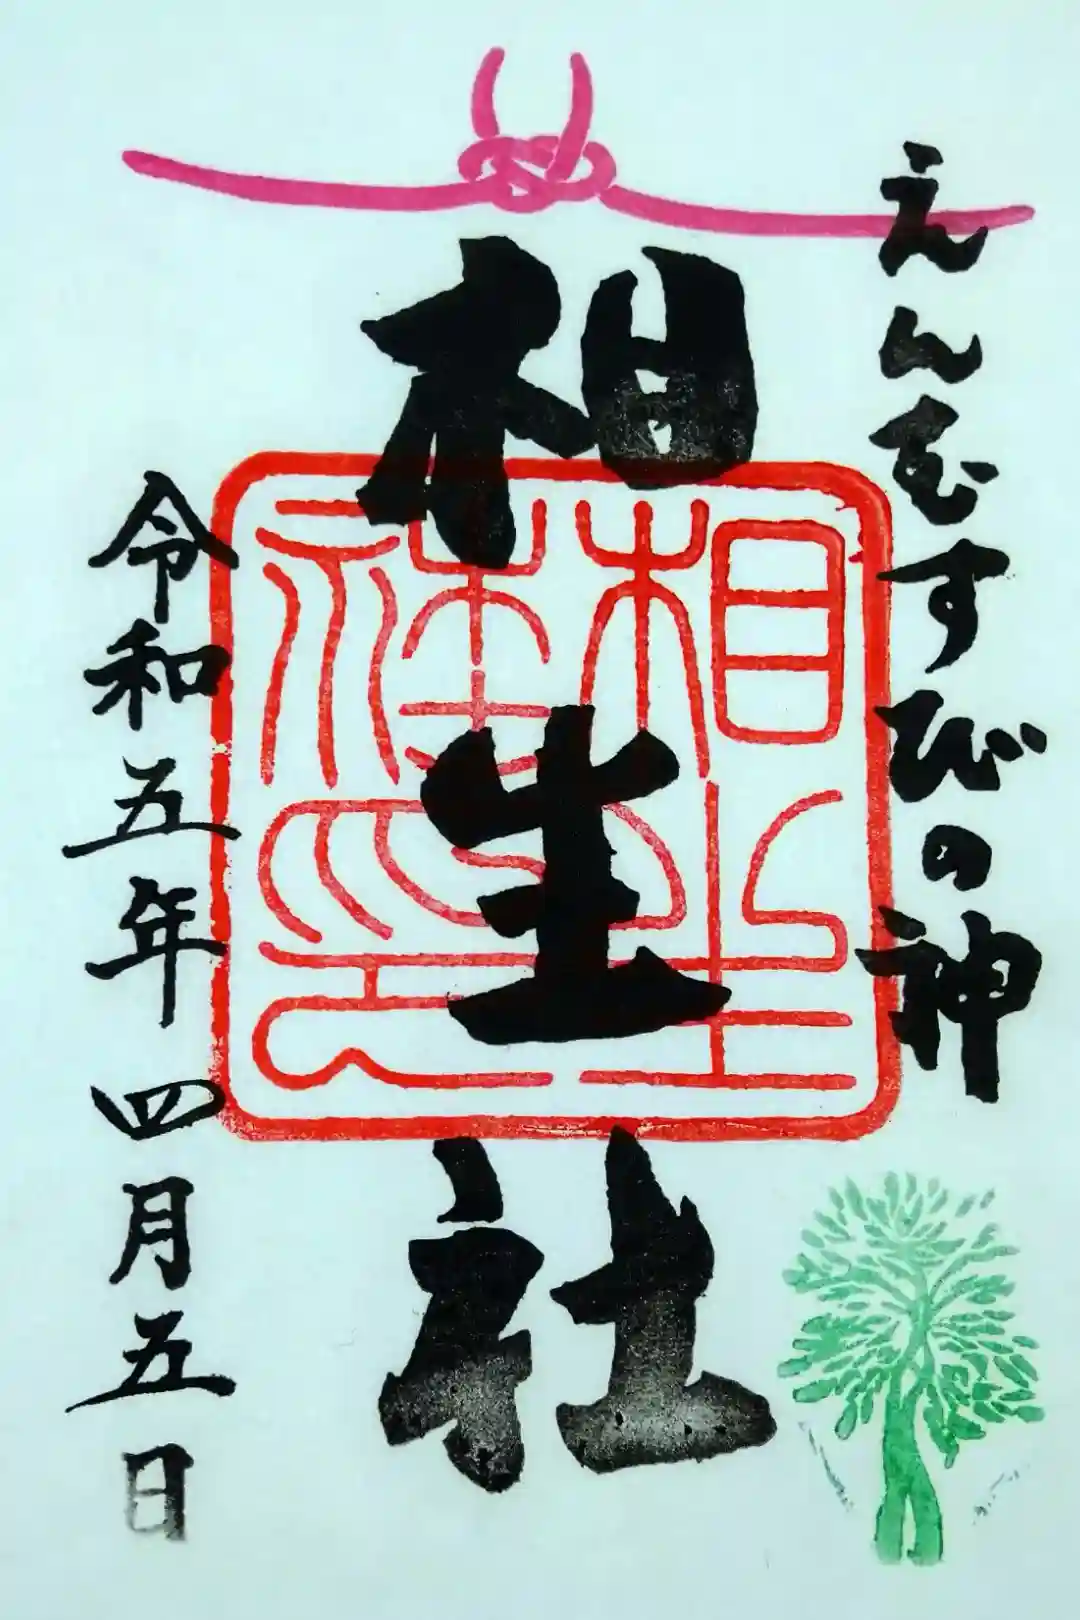 えんむすびの神
相生社
相生社神璽
令和五年四月五日